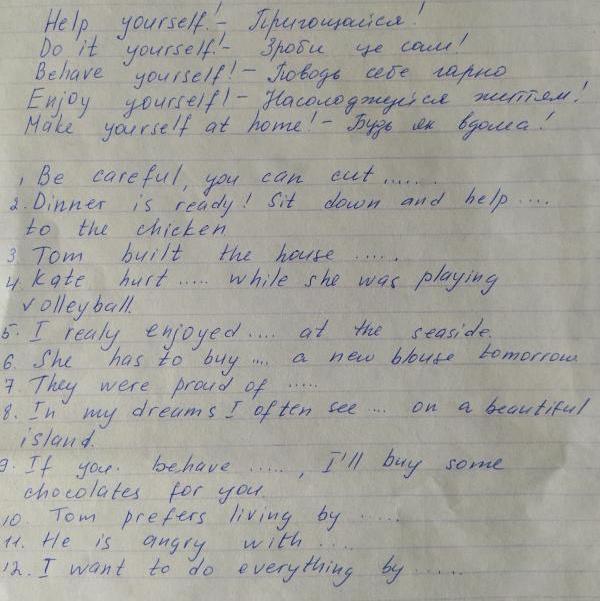 Help yourself! - Пригощайся!
Do it yourself! - Зроби це сам!
Behave yourself! - Поводь себе гарно
Enjoy yourself! - Насолоджуйся життям!
Make yourself at home! - Будь як вдома!
1. Be careful, you can cut ......
2. Dinner is ready! Sit down and help ....
to the chicken
3 Tom built the house .....
4 Kate hurt ..... while she was playing
volleyball.
5. I realy enjoyed .... at the seaside.
6. She has to buy .... a new blouse tomorrow.
7 They were proud of .....
8. In my dreams I often see ... on a beautiful
island.
9. If you behave ....., I'll buy some
chocolates for you.
10. Tom prefers living by .....
11. He is angry with ....
12. I want to do everything by .....